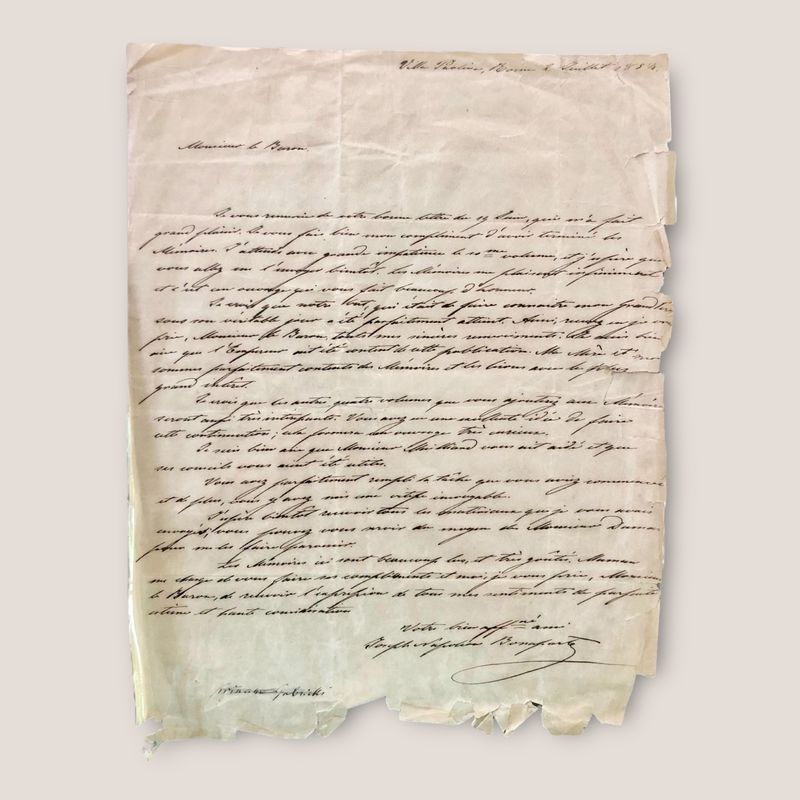 Villa Paolina, Rome 2 Juillet 1854.
Monsieur le Baron.
Je vous remercie de votre bonne lettre du 19 Juin, qui m'a fait
grand plaisir. Je vous fais bien mon compliment d'avoir terminé les
Mémoires. J'attends avec grande impatience le 10me volume, et j'espère que
vous allez me l'envoyer bientôt. Les Mémoires me plaisent infiniment
et c'est un ouvrage qui vous fait beaucoup d'honneur.
Je crois que notre but, qui était de faire connaitre mon Grand Père
sous son véritable jour a été parfaitement atteint. Aussi, recevez en je vous
prie, Monsieur le Baron, touts mes sincères remerciments. Je suis bien
aise que l'Empereur ait été content de cette publication. Ma Mère et moi
sommes parfaitement contents des Mémoires et les lisons avec le plus
grand intéret.
Je crois que les autres quatre volumes que vous ajoutez aux Mémoires
seront aussi très interessants. Vous avez eu une excellente idée de faire
cette continuation; cela formera un ouvrage très curieux.
Je suis bien aise que Monsieur vous ait aidé et que
ses conseils vous aient été utiles.
Vous avez parfaitement rempli la tâche que vous aviez commencée
et de plus, vous y avez mis une vitesse incroyable.
J'espère bientôt recevoir tous les matériaux que je vous avais
envoyés, vous pouvez vous servir du moyen de Monsieur
pour me les faire parvenir.
Les Mémoires ici sont beaucoup lus, et très goûtés. Maman
me charge de vous faire ses compliments et moi, je vous prie, Monsieur
le Baron, de recevoir l'expression de tous mes sentiments de parfaite
estime et haute considération
Votre bien affné ami
Joseph Napoléon Bonaparte